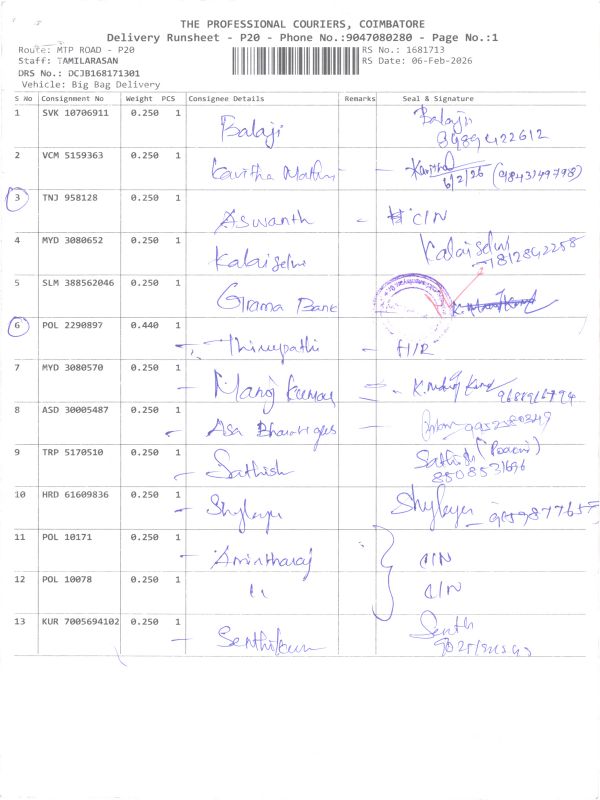 THE PROFESSIONAL COURIERS, COIMBATORE
Delivery Runsheet - P20 - Phone No.:9047080280 - Page No.:1
Route: MTP ROAD - P20
RS No.: 1681713
Staff: TAMILARASAN
RS Date: 06-Feb-2026
DRS No.: DCJB168171301
Vehicle: Big Bag Delivery
S No Consignment No Weight PCS Consignee Details Remarks Seal & Signature
1 SVK 10706911 0.250 1 Balaji Balaji
8989422612
2 VCM 5159363 0.250 1 Kavitha Kavitha
6/2/26 (9843149798)
3 TNJ 958128 0.250 1 Aswanth - C/N
4 MYD 3080652 0.250 1 Kalaiselvi Kalaiselvi
7812842258
5 SLM 388562046 0.250 1 Grama Bank
6 POL 2290897 0.440 1 Thirupathi - H/R
7 MYD 3080570 0.250 1 Manoj Kumar
8 ASD 30005487 0.250 1 Asa
9 TRP 5170510 0.250 1 Sathish Sathish
8508531696
10 HRD 61609836 0.250 1 Shylaja
9859877657
11 POL 10171 0.250 1 C/N
12 POL 10078 0.250 1 " C/N
13 KUR 7005694102 0.250 1 Senthil